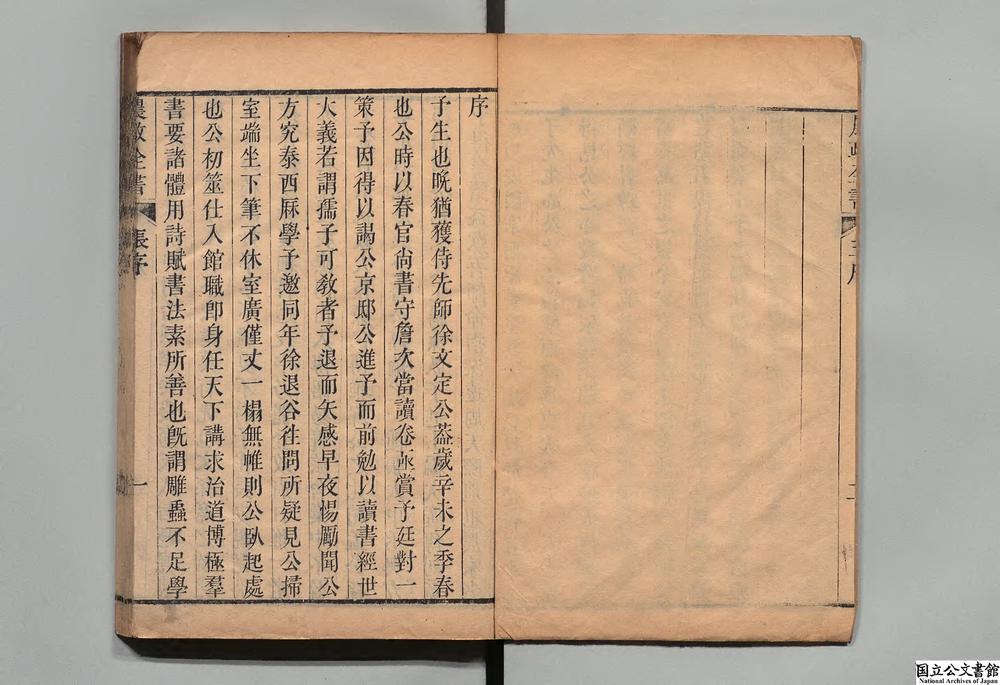 序
予生也晚猶獲侍先師徐文定公葢歲辛未之季春
也公時以春官尙書守詹次當讀卷亟賞予廷對一
策予因得以謁公京邸公進予而前勉以讀書經世
大義若謂孺子可敎者予退而矢感早夜惕勵聞公
方究泰西厤學予邀同年徐退谷徃問所疑見公掃
室端坐下筆不休室廣僅丈一榻無帷則公臥起處
也公初筮仕入館職卽身任天下講求治道博極羣
書要諸體用詩賦書法素所善也旣謂雕蟲不足學
農政全書 張序 一
国立公文書館
National Archives of Japan